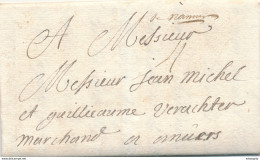 de namur
A Messieur
4
Messieur jean michel
et guillieaume verachter
marchand a anvers